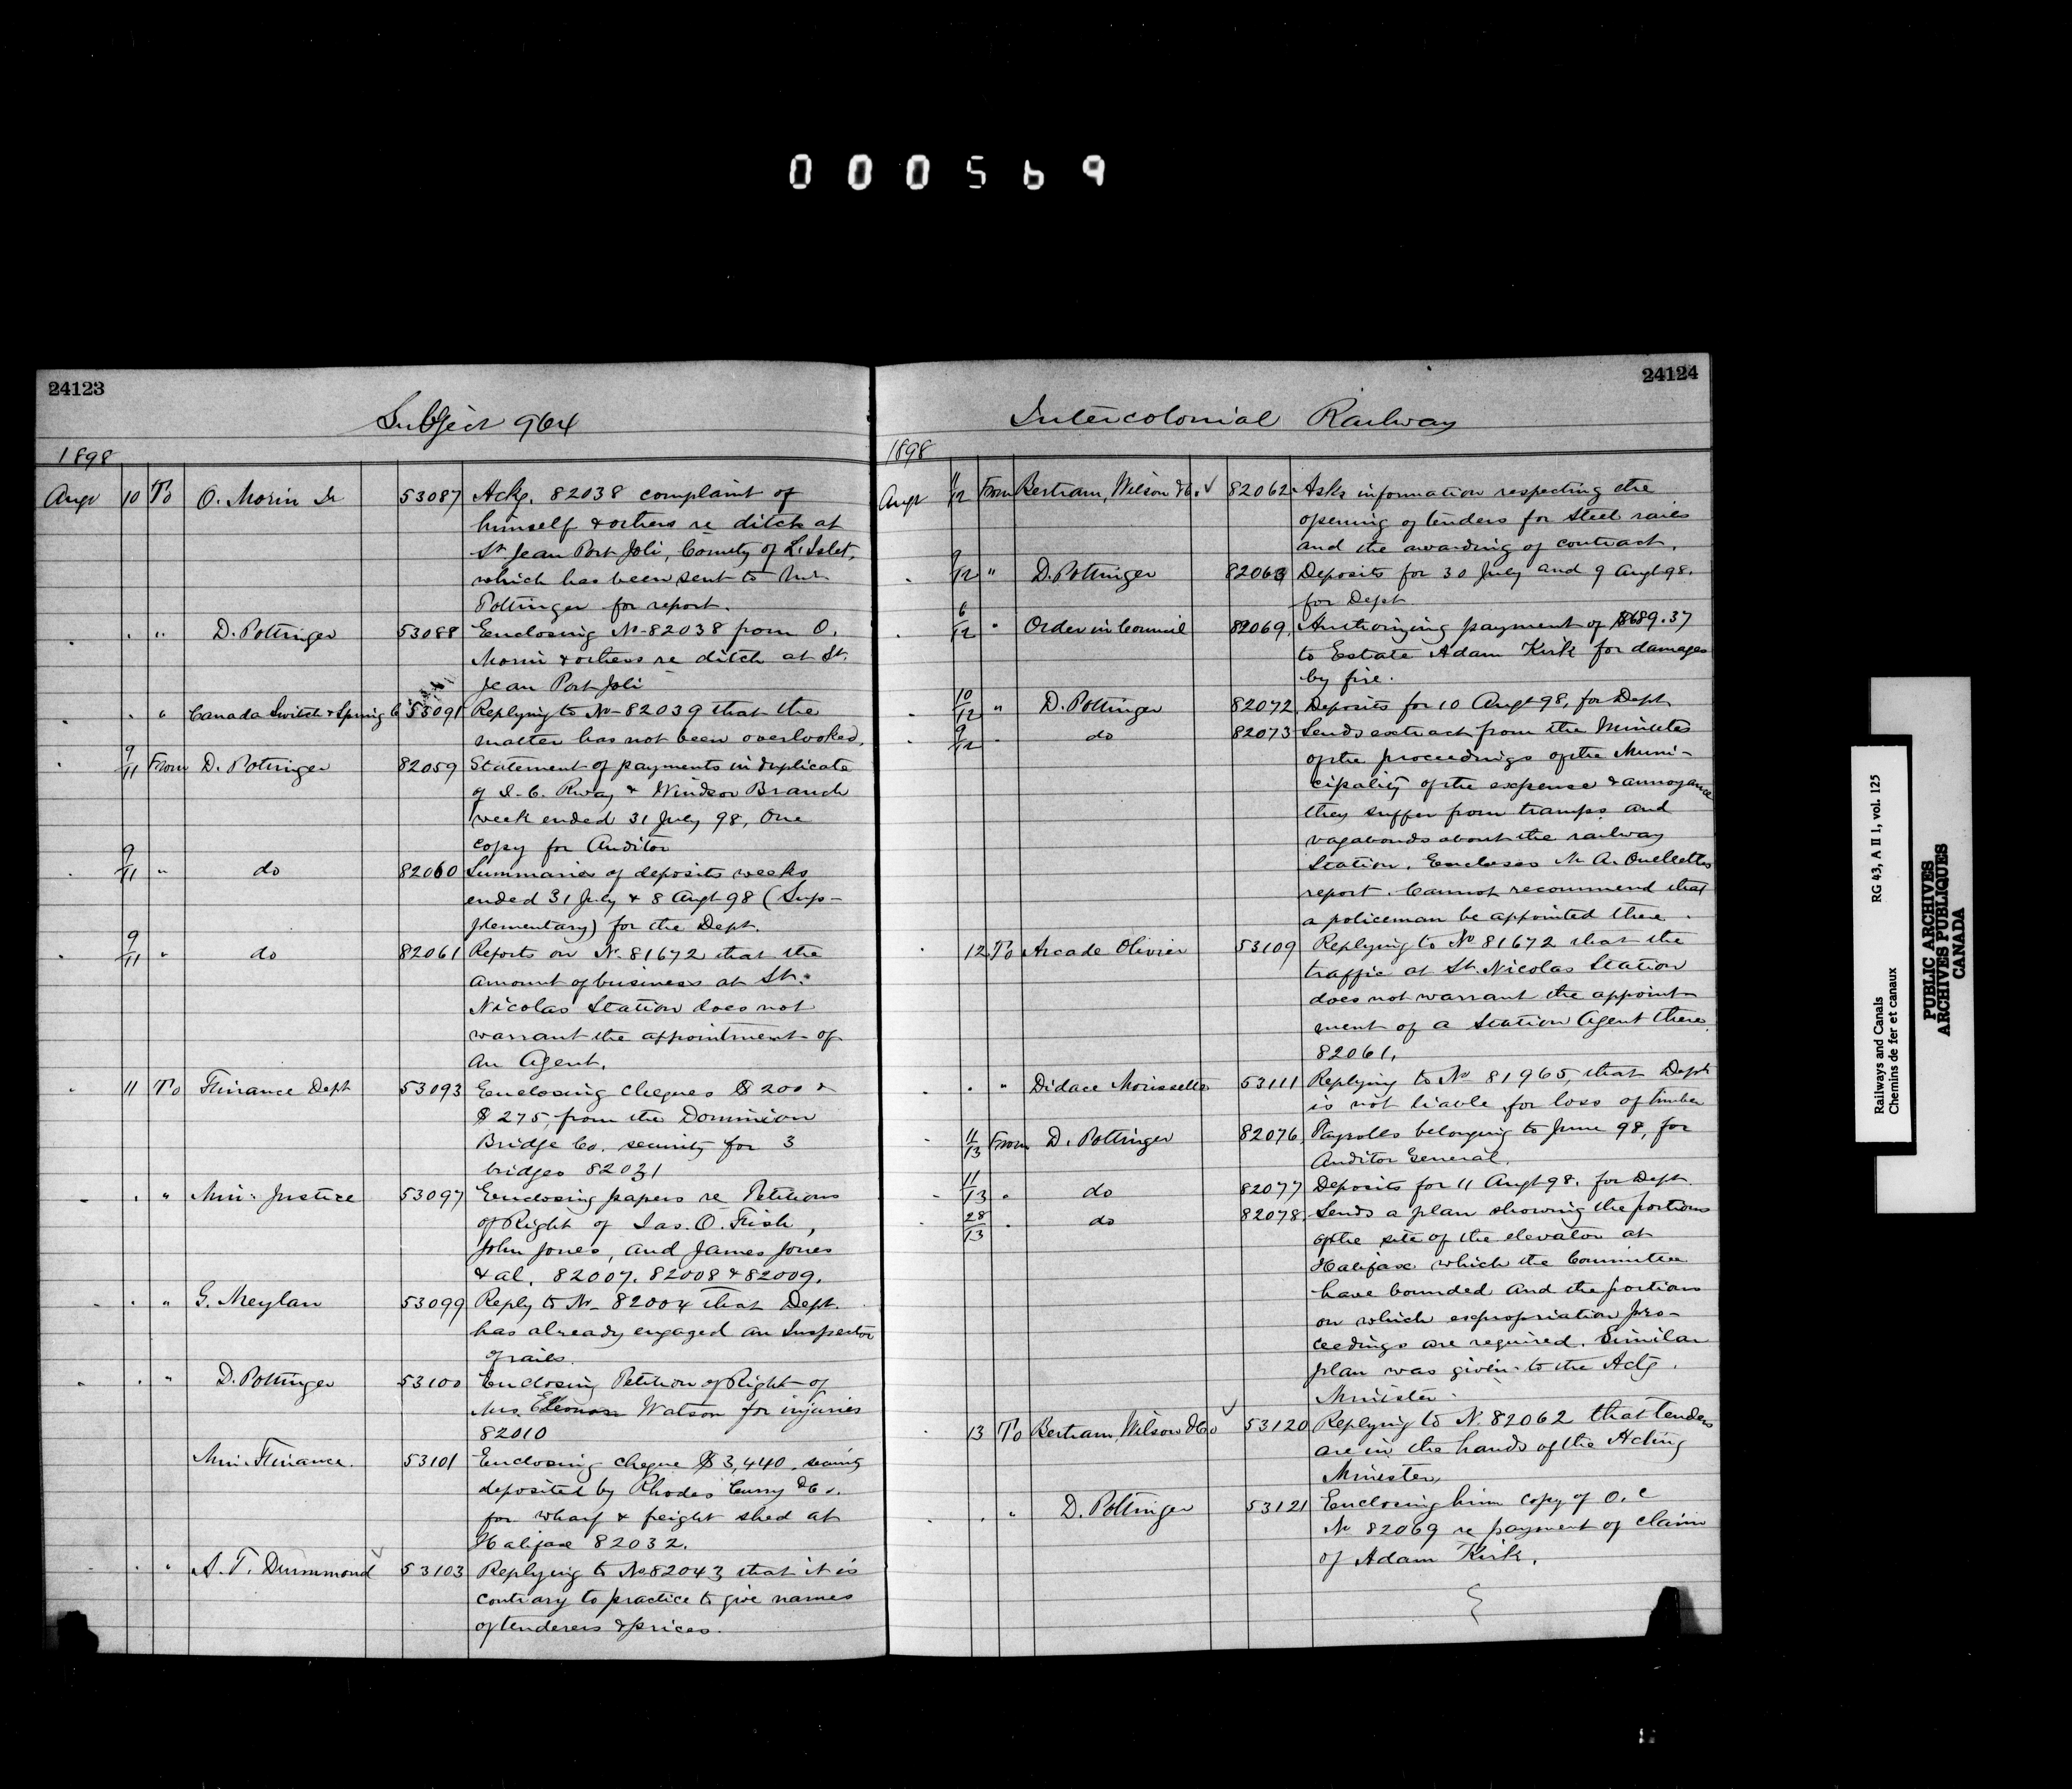 000569
24123
Subject 964
1898
Augt 10 To O. Morin Jr 53087 Ackg. 82038 complaint of
himself & others re ditch at
St Jean Port Joli, County of L'Islet,
which has been sent to Mr
Pottinger for report.
" . " D. Pottinger 53088 Enclosing No 82038 from O.
Morin & others re ditch at St.
Jean Port Joli
" . " Canada Switch & Spring Co 53091 Replying to No 82039 that the
matter has not been overlooked.
" 9/11 From D. Pottinger 82059 Statement of payments in duplicate
of I. C. Rway & Windsor Branch
week ended 31 July 98, One
copy for Auditor
" 9/11 " do 82060 Summaries of deposits weeks
ended 31 July & 8 Augt 98 (Sup-
plementary) for the Dept.
" 9/11 " do 82061 Reports on No 81672 that the
amount of business at St.
Nicolas Station does not
warrant the appointment of
an Agent.
" 11 To Finance Dept 53093 Enclosing cheques $200 &
$275, from the Dominion
Bridge Co. security for 3
bridges 82031
" . " Min. Justice 53097 Enclosing papers re Petitions
of Right of Jas. O. Fish,
John Jones, and James Jones
& al. 82007. 82008 & 82009.
" . " G. Meylan 53099 Reply to No 82004 that Dept.
has already engaged an Inspector
of rails.
" . " D. Pottinger 53100 Enclosing Petition of Right of
Mrs. Eleonor Watson for injuries
82010
Min. Finance. 53101 Enclosing cheque $3,440. security
deposited by Rhodes Curry & Co.
for wharf & freight shed at
Halifax 82032.
" . " A. T. Drummond 53103 Replying to No 82043 that it is
contrary to practice to give names
of tenderers & prices.
24124
Intercolonial Railway
1898
Augt 11/12 From Bertram, Wilson & Co. 82062 Asks information respecting the
opening of tenders for steel rails
and the awarding of contract.
" 9/12 " D. Pottinger Deposits for 30 July and 9 Augt 98.
for Dept
" 6/12 " Order in Council 82069. Authorizing payment of $689.37
to Estate Adam Kirk for damages
by fire.
" 10/12 " D. Pottinger 82072. Deposits for 10 Augt 98, for Dept
" 9/12 " do 82073 Sends extract from the Minutes
of the proceedings of the Muni-
cipality of the expense & annoyance
they suffer from tramps and
vagabonds about the railway
Station. Encloses Mr A. Ouellette's
report. Cannot recommend that
a policeman be appointed there.
" 12 To Arcade Olivier 53109 Replying to No 81672 that the
traffic at St. Nicolas Station
does not warrant the appoint-
ment of a Station Agent there.
82061.
" . " Didace Morissette 53111 Replying to No 81965, that Dept
is not liable for loss of timber
" 11/13 From D. Pottinger 82076. Payrolls belonging to June 98, for
Auditor General.
" 11/13 " do 82077 Deposits for 11 Augt 98. for Dept.
" 28/13 " do 82078. Sends a plan showing the portions
of the site of the elevator at
Halifax which the Committee
have bounded and the portions
on which expropriation pro-
ceedings are required. Similar
plan was given to the Actg.
Minister.
" 13 To Bertram, Wilson & Co 53120 Replying to No. 82062 that tenders
are in the hands of the Acting
Minister
" . " D. Pottinger 53121 Enclosing him copy of O. C
No 82069 re payment of claim
of Adam Kirk.
Railways and Canals RG 43, A II 1, vol. 125
Chemins de fer et canaux
PUBLIC ARCHIVES
ARCHIVES PUBLIQUES
CANADA